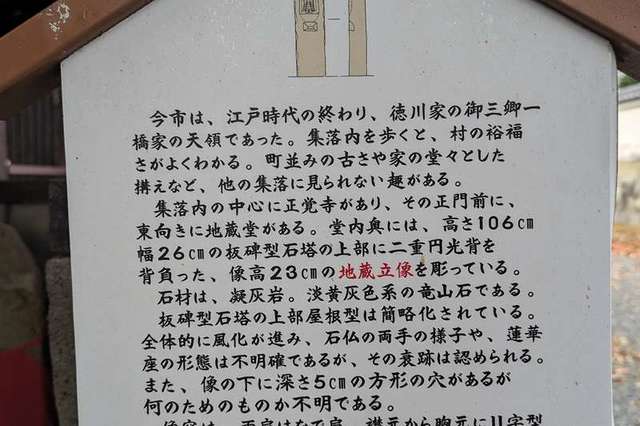 今市は、江戸時代の終わり、徳川家の御三卿一
橋家の天領であった。集落内を歩くと、村の裕福
さがよくわかる。町並みの古さや家の堂々とした
拵えなど、他の集落に見られない趣がある。
集落内の中心に正覚寺があり、その正門前に、
東向きに地蔵堂がある。堂内奥には、高さ106㎝
幅26㎝の板碑型石塔の上部に二重円光背を
背負った、像高23㎝の地蔵立像を彫っている。
石材は、凝灰岩。淡黄灰色系の竜山石である。
板碑型石塔の上部屋根型は簡略化されている。
全体的に風化が進み、石仏の両手の様子や、蓮華
座の形態は不明確であるが、その衰跡は認められる。
また、像の下に深さ5㎝の方形の穴があるが
何のためのものか不明である。
像容は、両肩はなで肩、襟元から胸元にU字型